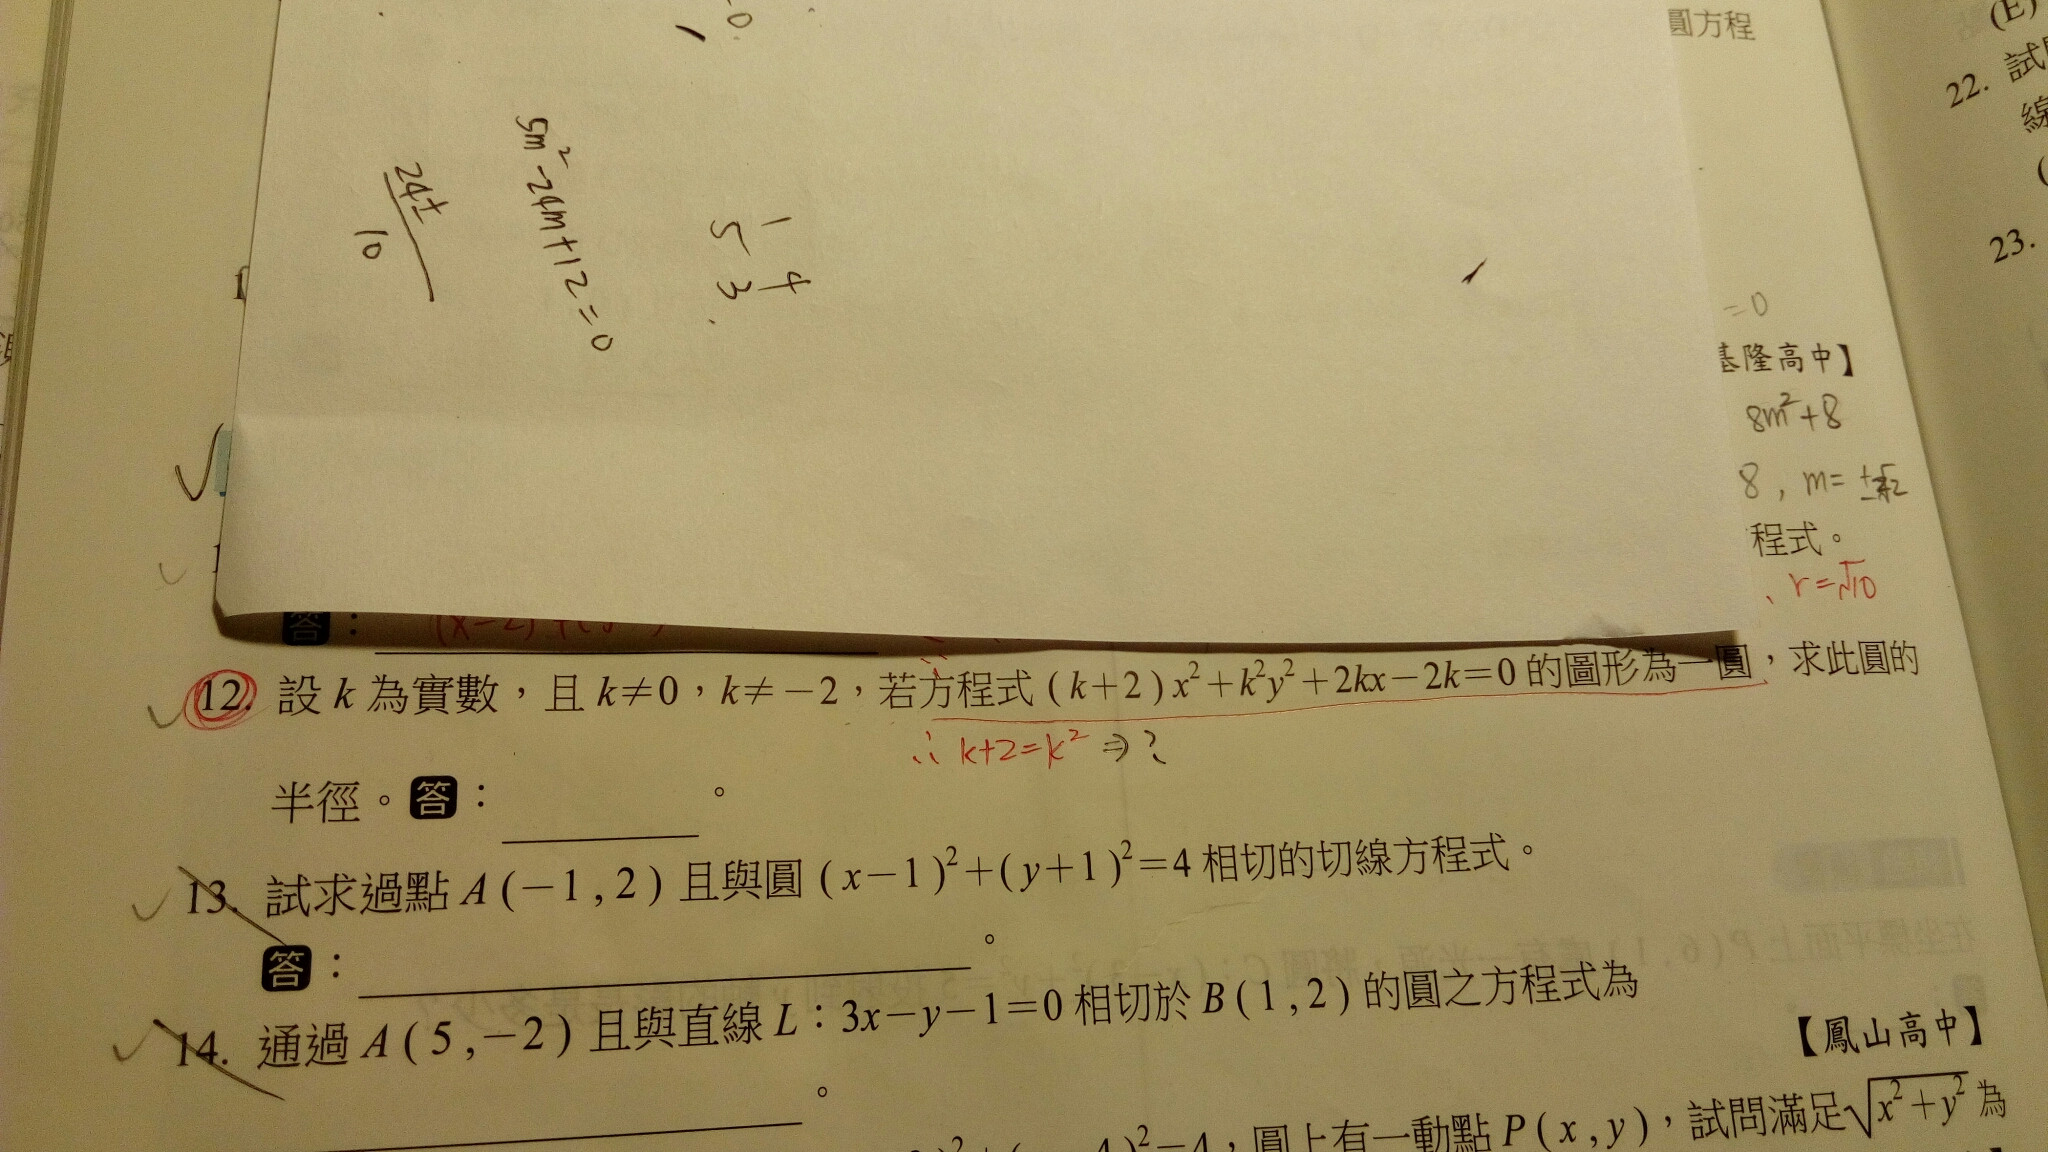 圓方程
(E)
22. 試
線
(
23.
5m²-24m+12=0
24±
10
1 4
5 3
=0
基隆高中】
8m²+8
8, m=
程式。
、r=√10
答：
12. 設 k 為實數，且 k≠0，k≠−2，若方程式 (k+2)x²+k²y²+2kx−2k=0 的圖形為一圓，求此圓的
∴ k+2=k² ⇒ ?
半徑。答：　　　。
13. 試求過點 A(−1,2) 且與圓 (x−1)²+(y+1)²=4 相切的切線方程式。
答：　　　。
14. 通過 A(5,−2) 且與直線 L：3x−y−1=0 相切於 B(1,2) 的圓之方程式為
　　　。
【鳳山高中】
，圓上有一動點 P(x,y)，試問滿足√x²+y² 為